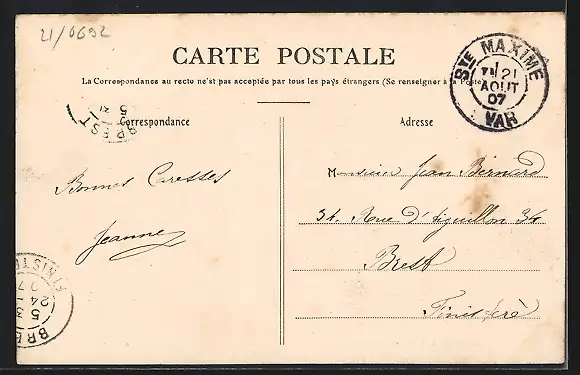 21/0692
CARTE POSTALE
La Correspondance au recto n'est pas acceptée par tous les pays étrangers (Se renseigner à la Poste)
STE MAXIME
21
AOUT
07
VAR
BREST
5
Correspondance
Adresse
Monsieur Jean Bernard
Bonnes Caresses
34. Rue d'Aiguillon 34
Jeanne
Brest
Finistère
FINIST
07
24
5
BRE